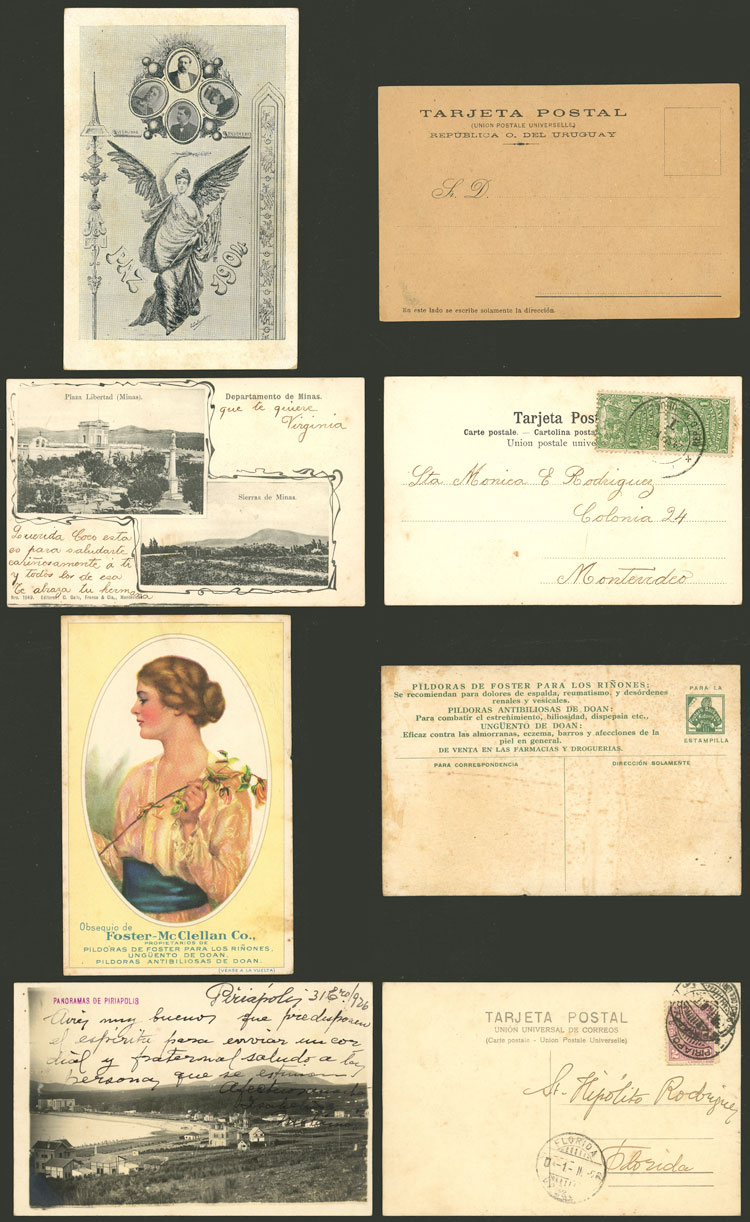 PAZ
1904
TARJETA POSTAL
(UNION POSTALE UNIVERSELLE)
REPÚBLICA O. DEL URUGUAY
Sr. D.
En este lado se escribe solamente la dirección.
Plaza Libertad (Minas).
Departamento de Minas.
que te quiere
Virginia
Sierras de Minas.
Querida Coco esta
es para saludarte
cariñosamente á ti
y todos los de esa
Te abraza tu hermana
Tarjeta Pos
Carte postale. — Cartolina posta
Union postale unive
Sta Monica E Rodriguez
Colonia 24
Montevideo
Obsequio de
Foster-McClellan Co.,
PROPIETARIOS DE
PILDORAS DE FOSTER PARA LOS RIÑONES,
UNGÜENTO DE DOAN,
PILDORAS ANTIBILIOSAS DE DOAN.
(VEASE A LA VUELTA)
PILDORAS DE FOSTER PARA LOS RIÑONES:
Se recomiendan para dolores de espalda, reumatismo y desórdenes
renales y vesicales.
PILDORAS ANTIBILIOSAS DE DOAN:
Para combatir el estreñimiento, biliosidad, dispepsia etc.,
UNGÜENTO DE DOAN:
Eficaz contra las almorranas, eczema, barros y afecciones de la
piel en general.
DE VENTA EN LAS FARMACIAS Y DROGUERIAS.
PARA LA
ESTAMPILLA
PARA CORRESPONDENCIA
DIRECCIÓN SOLAMENTE
PANORAMAS DE PIRIAPOLIS
Piriápolis 31 Ero/926
Aires muy buenos que predisponen
el espíritu para enviar un cor
dial y fraternal saludo a las
personas que se estiman
TARJETA POSTAL
UNIÓN UNIVERSAL DE CORREOS
(Carte postale - Union Postale Universelle)
Sr. Hipólito Rodriguez
Florida
FLORIDA